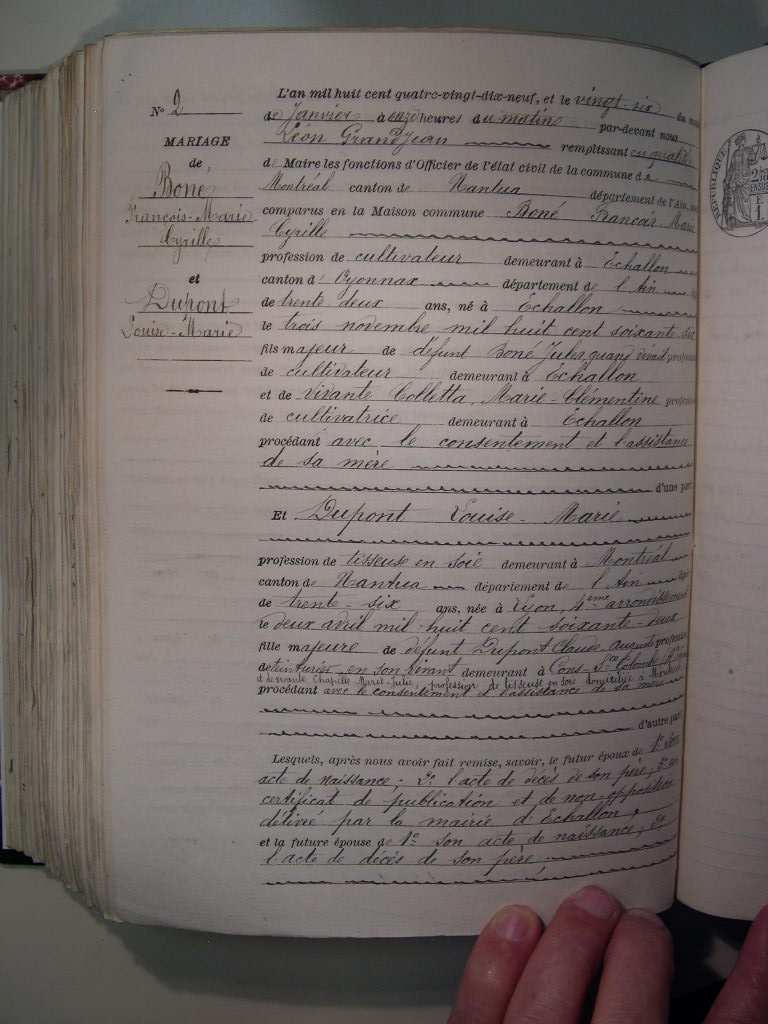 N° 2
MARIAGE
de
Boné
François-Marie
Cyrille
et
Dupont
Louise-Marie
L'an mil huit cent quatre-vingt-dix-neuf, et le vingt-six du mois
de Janvier à onze heures du matin par-devant nous
Léon Grandjean remplissant en qualité
de Maire les fonctions d'Officier de l'état civil de la commune de
Montréal canton de Nantua département de l'Ain,
comparus en la Maison commune Boné François Marie
Cyrille
profession de cultivateur demeurant à Echallon
canton d' Oyonnax département de l'Ain
de trente deux ans, né à Echallon
le trois novembre mil huit cent soixante six
fils majeur de défunt Boné Jules quand vivait profession
de cultivateur demeurant à Echallon
et de vivante Colletta, Marie-Clémentine profession
de cultivatrice demeurant à Echallon
procédant avec le consentement et l'assistance
de sa mère
d'une part
Et Dupont Louise-Marie
profession de tisseuse en soie demeurant à Montréal
canton de Nantua département de l'Ain
de trente-six ans, née à Lyon, 4eme arrondissement
le deux avril mil-huit cent soixante-deux
fille majeure de défunt Dupont Claude Auguste profession
de teinturier en son vivant demeurant à Ste Colombe
et de vivante Chapelle Marie-Julie, profession de tisseuse en soie domiciliée à Montréal
procédant avec le consentement et l'assistance de sa mère
d'autre part
Lesquels, après nous avoir fait remise, savoir, le futur époux de 1° son
acte de naissance; 2° l'acte de décès de son père; 3° un
certificat de publication et de non-opposition
délivré par la mairie d'Echallon;
et la future épouse de 1° son acte de naissance; 2°
l'acte de décès de son père
REPUBLIQUE